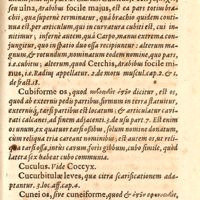 seu ulna, Arabibus focile maius, est ea pars totius bra-
chij, quæ supernè terminatur, quâ brachio quidem conti-
nua est per articulum, qui in curvatura cubiti est, cui in-
nititur; infernè autem, quâ Carpo, manus extrema con-
jungitur, qua in spatio duo ossa recipiuntur: alterum mag-
num, & rotundum, nominatum eodem nomine, quo pars,
i.e. Cubitus, alterum, quod Cerchis, Arabibus focile mi-
nus, i.e. Radius appellatur. 2. de motu muscul. cap. 2. & 1.
de fract. 18.
Cubiforme os, quod κυβοειδὲς ὀστοῦν dicitur, est os,
quod ab externis pedis partibus firmum in terra
jacet partibus externis, & locatum: & articulatur cavitati,
ad finem adjacenti. 3. de usu part. 7. Est enim
os unum, ex quatuor tarsi ossibus, solum nomine donatum,
cum reliqua tria careant nominibus; est autem os, ut reli-
qua tarsi ossa, intus cavum foris gibbum, cubo simile, quòd
latera sex habeat cubo communia.
Cuculus. Vide Coccyx.
Cucurbitulæ leves, quæ citra scarificationem adap-
tantur. 3. loc. aff. cap. 4.
Cunei os, sive cuneiforme, quod &